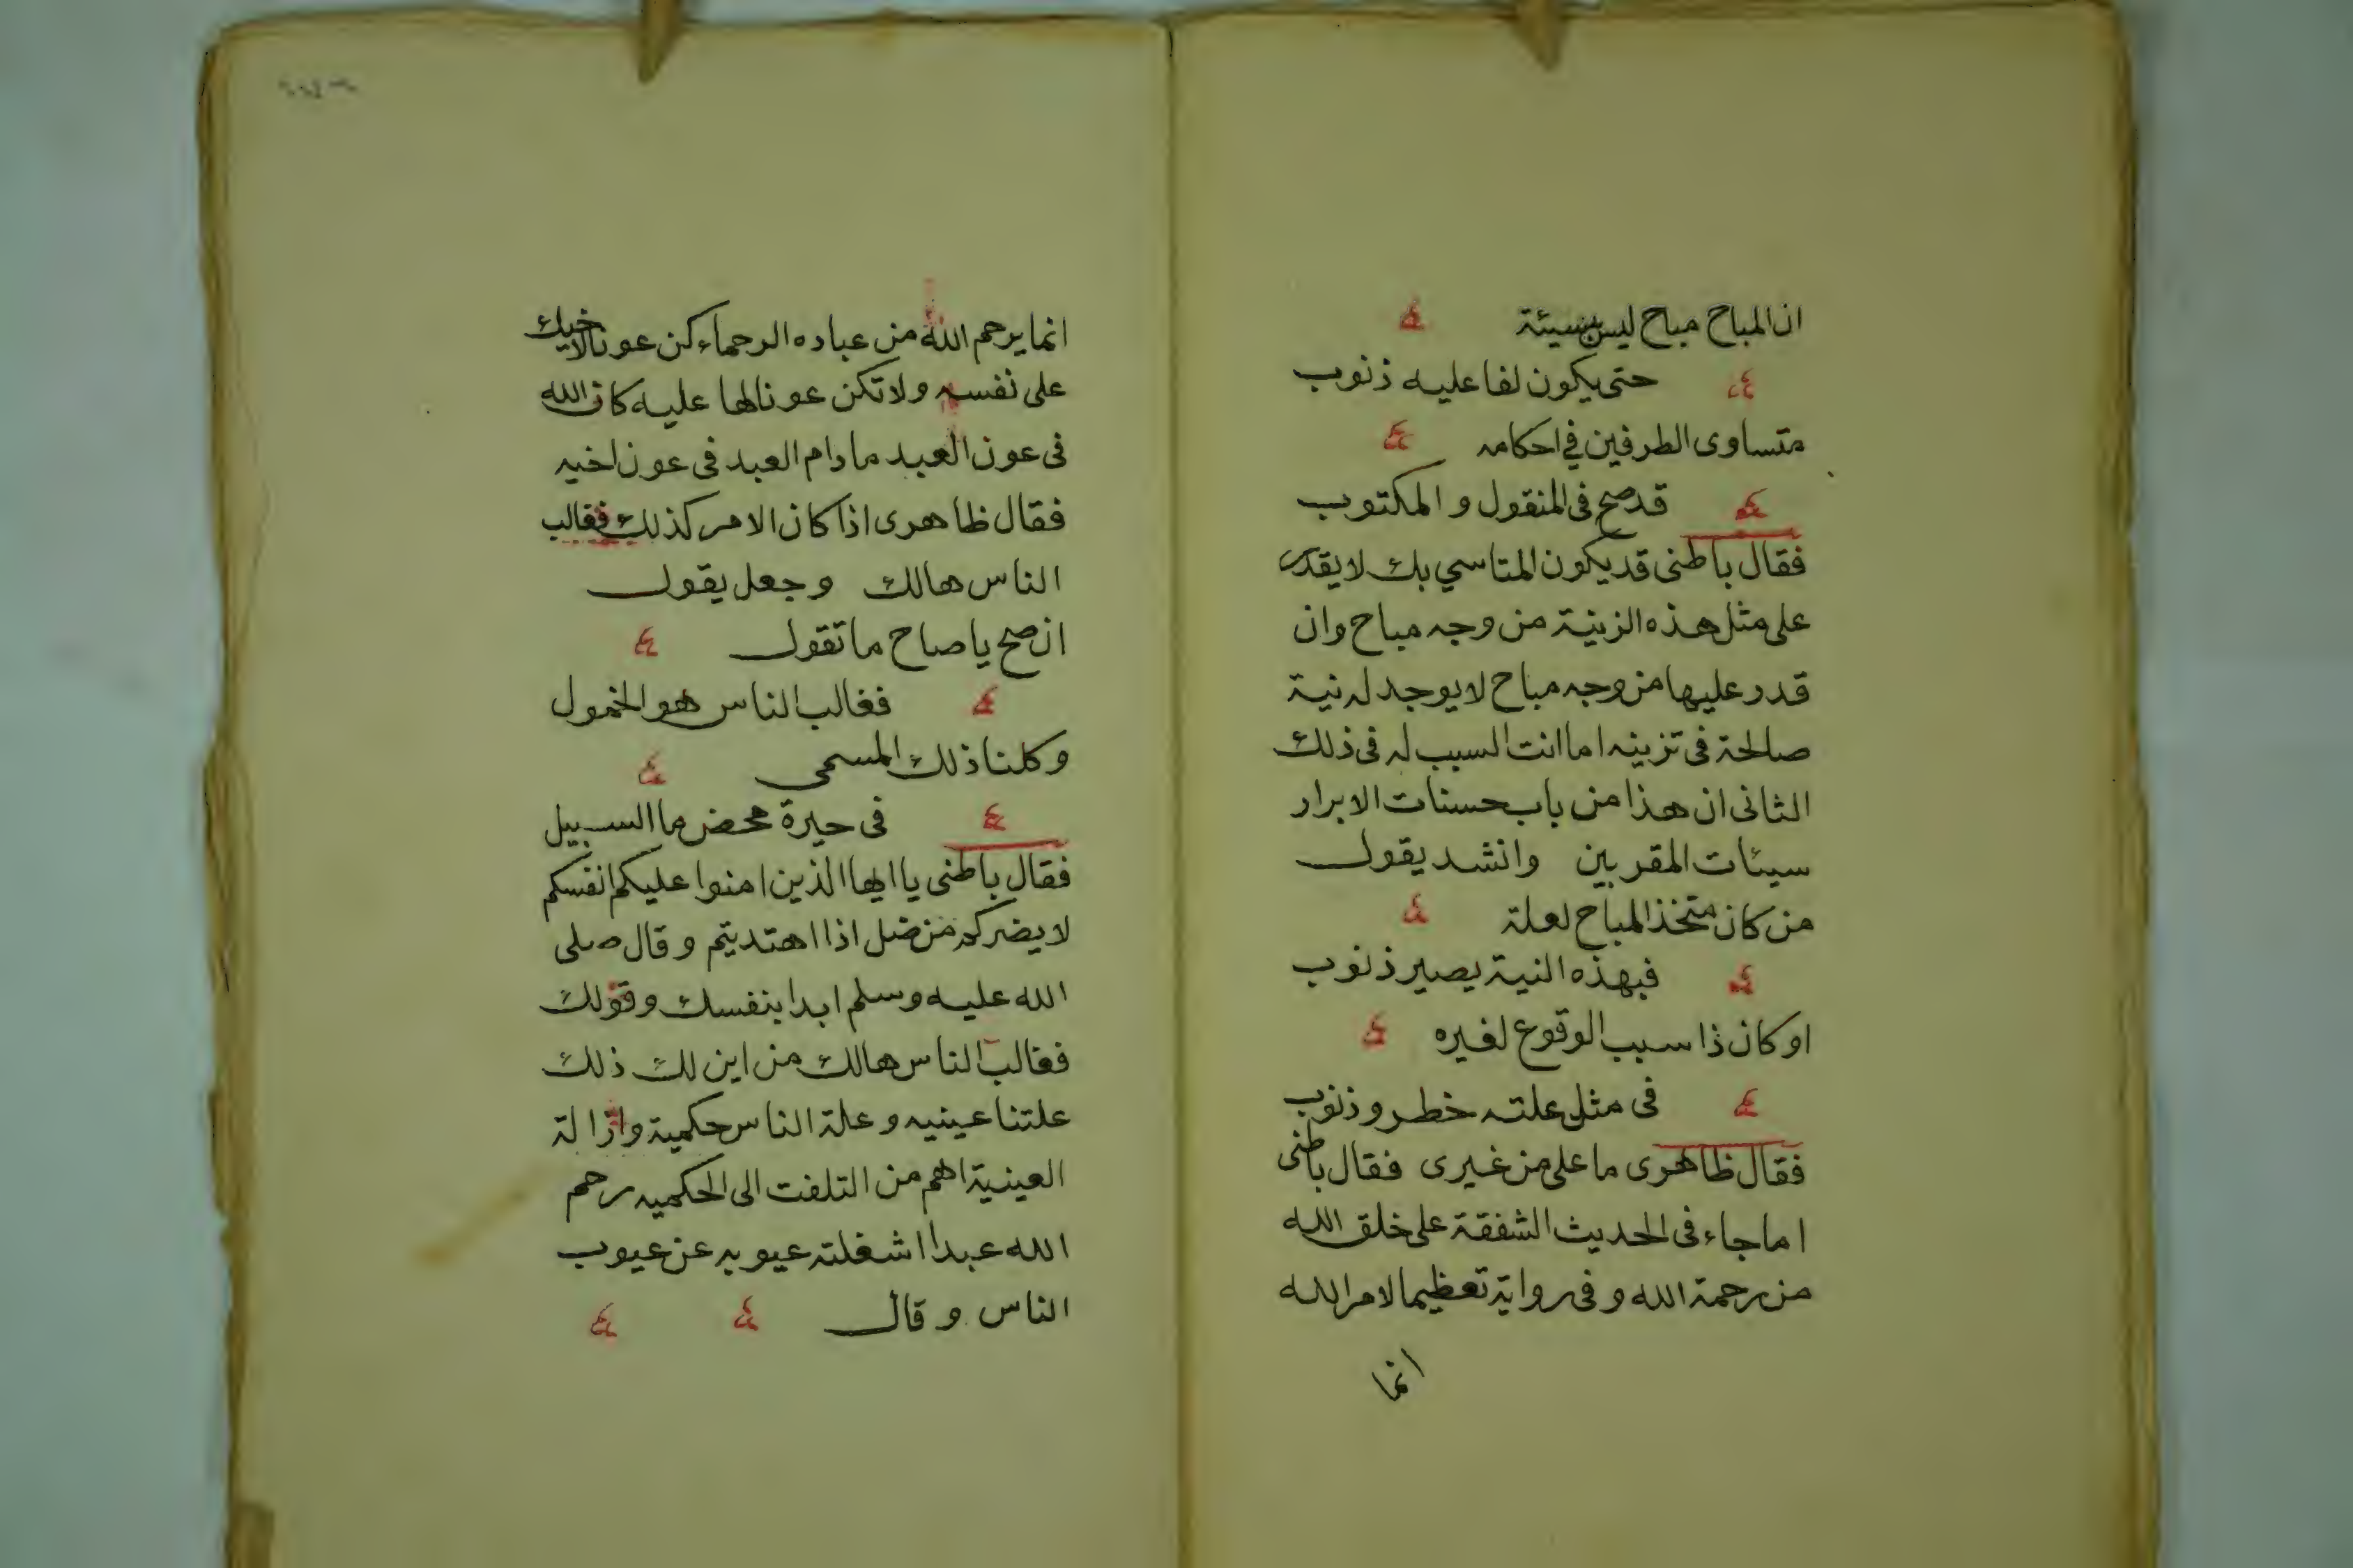 ان المباح مباح ليس بسيئة
حتى يكون لفاعليه ذنوب
متساوى الطرفين في احكامه
قد صح فى المنقول و المكتوب
فقال باطنى قد يكون المتاسي بك لا يقدر
على مثل هذه الزينة من وجه مباح وان
قدر عليها من وجه مباح لا يوجد له نية
صالحة فى تزينه اما انت السبب له فى ذلك
الثانى ان هذا من باب حسنات الابرار
سيئات المقربين وانشد يقول
من كان متخذ المباح لعلة
فبهذه النية يصير ذنوب
او كان ذا سبب الوقوع لغيره
فى مثل علته خطر و ذنوب
فقال ظاهرى ما على من غيرى فقال باطنى
اما جاء فى الحديث الشفقة على خلق الله
من رحمة الله و فى رواية تعظيما لامر الله
انما
انما يرحم الله من عباده الرحماء كن عونا لاخيك
على نفسه ولا تكن عونا لها عليه كان الله
فى عون العبد ما دام العبد فى عون اخيه
فقال ظاهرى اذا كان الامر كذلك فغالب
الناس هالك وجعل يقول
ان صح يا صاح ما تقول
فغالب الناس هو الخمول
وكلنا ذلك المسمى
فى حيرة محض ما السبيل
فقال باطنى يا ايها الذين امنوا عليكم انفسكم
لا يضركم من ضل اذا اهتديتم و قال صلى
الله عليه وسلم ابدا بنفسك وقولك
فغالب الناس هالك من اين لك ذلك
علتنا عينيه و علة الناس حكمية وازالة
العينية اهم من التلفت الى الحكميه رحم
الله عبدا اشغلته عيوبه عن عيوب
الناس و قال